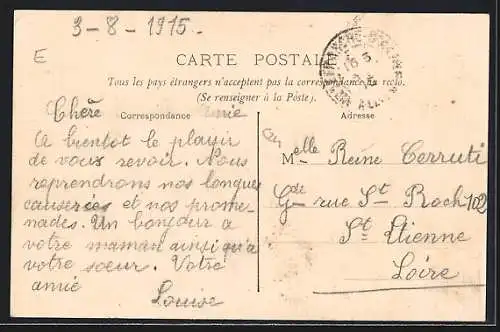 3-8-1915.
E
CARTE POSTALE
Tous les pays étrangers n'acceptent pas la correspondance au recto.
(Se renseigner à la Poste).
Correspondance
Adresse
Chère amie
A bientot le plaisir
de vous revoir. Nous
reprendrons nos longues
causeries et nos prome-
nades. Un bonjour a
votre maman ainsi qu'a
votre soeur. Votre
amie
Louise
Melle Reine Cerruti
Gde rue St Roch 102
St Etienne
Loire